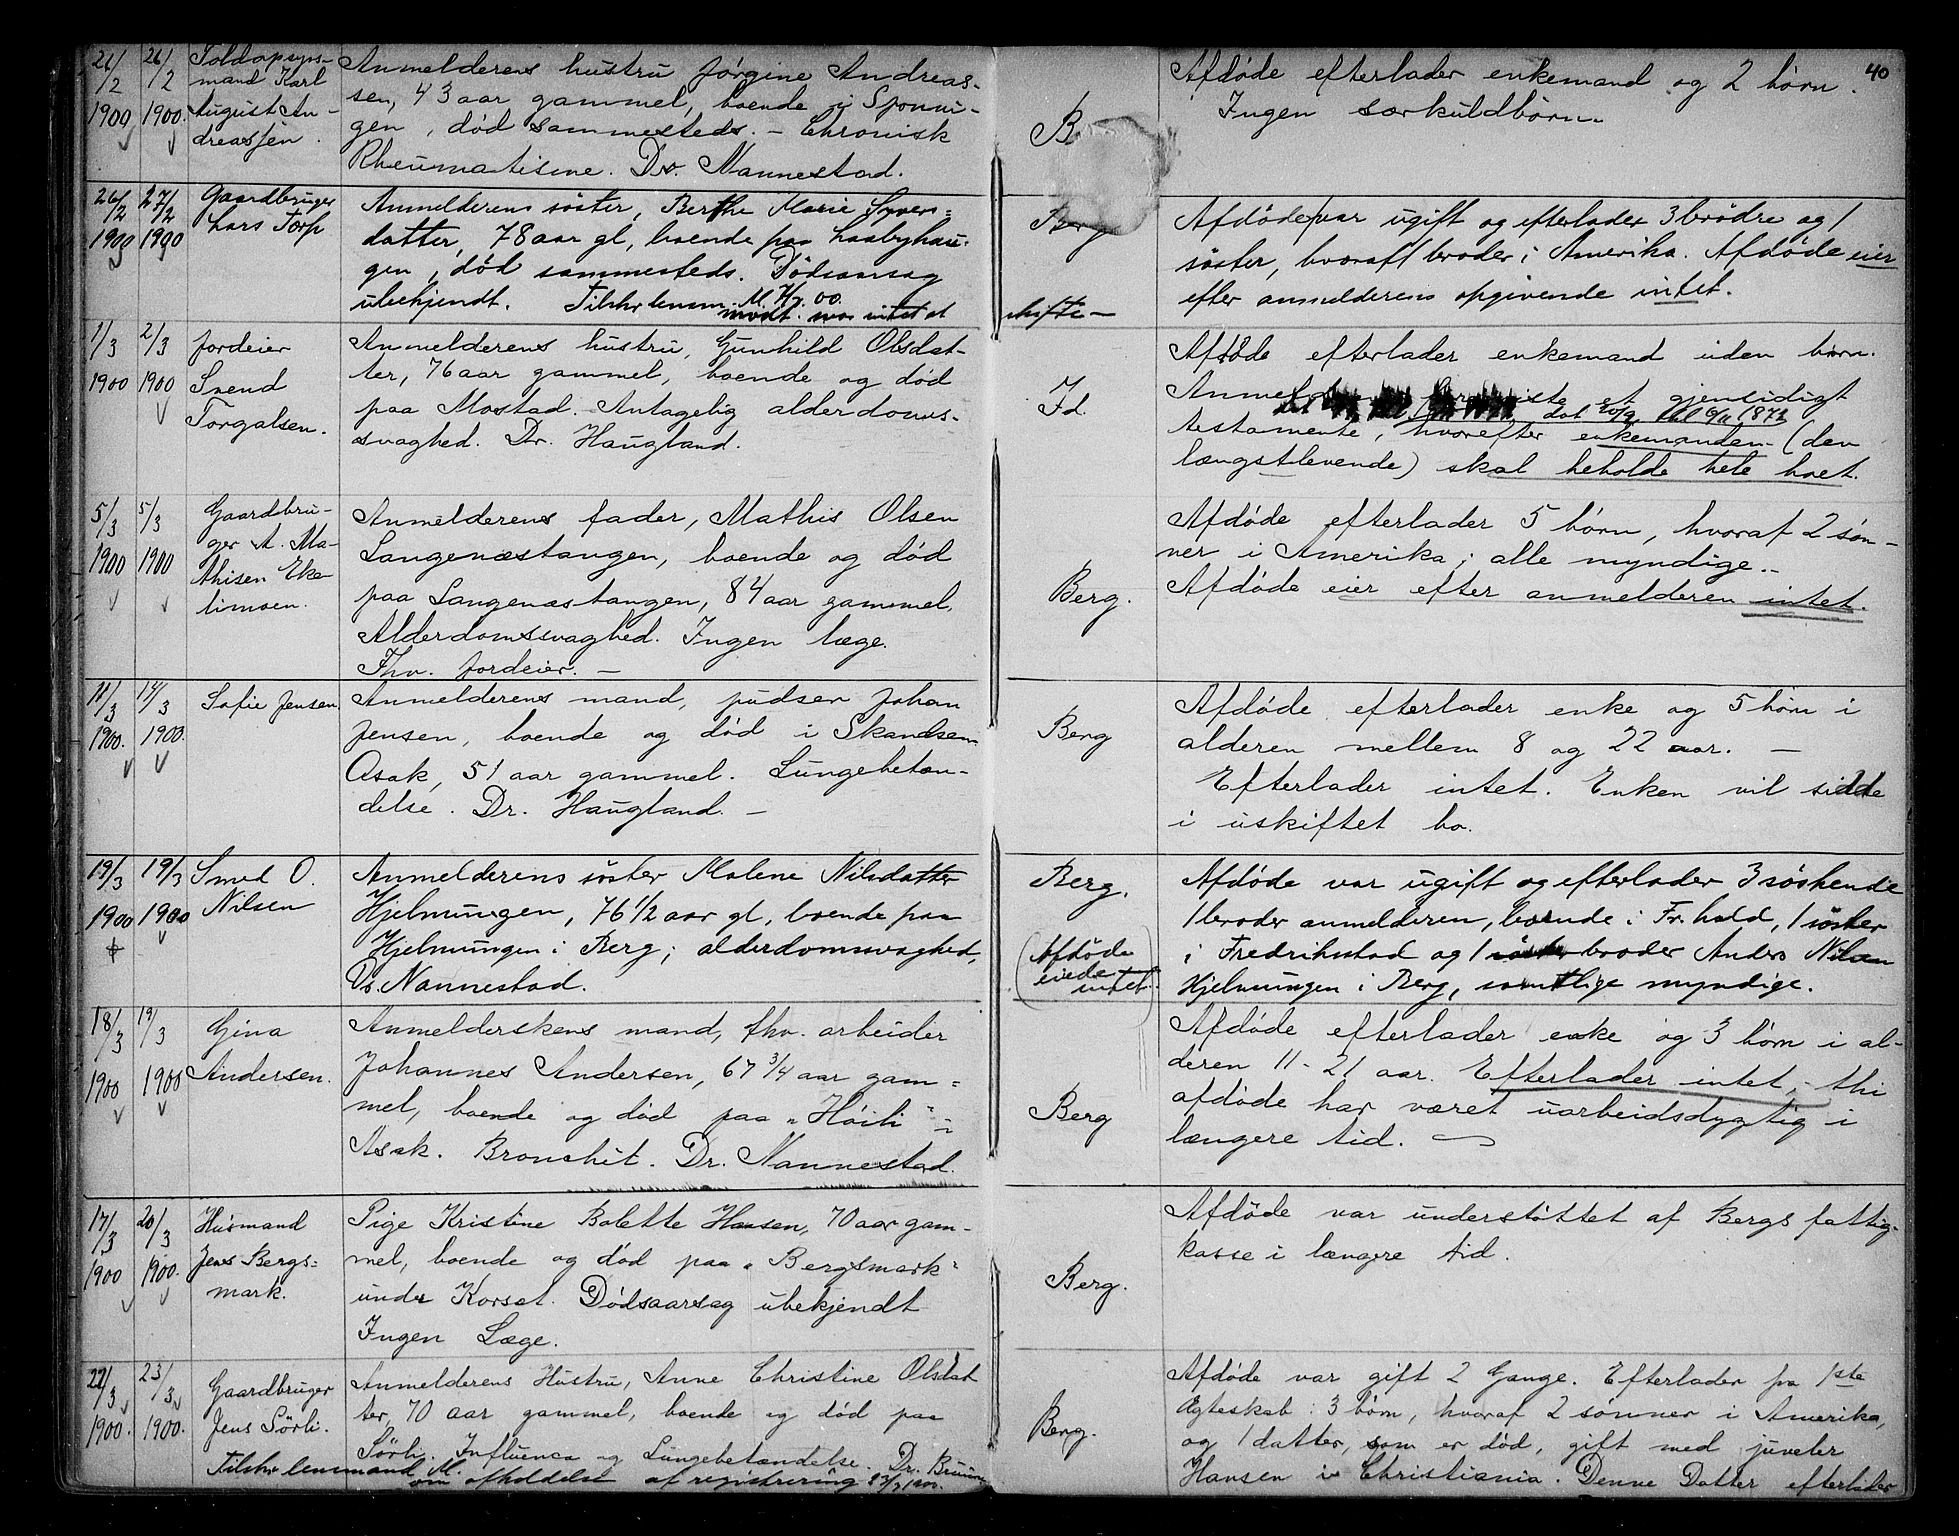 40
26/2 1900
26/2 1900.
Toldopsyns-
mand Karl
August An-
dreassen.
Anmelderens hustru Jørgine Andreas-
sen, 43 aar gammel, boende i Sponvi-
gen, død sammesteds. – Chronisk
Rheumatisme. Dr. Nannestad.
B
Afdøde efterlader enkemand og 2 børn.
Ingen særkuldbørn.
26/2 1900
27/2 1900
Gaardbruger
Lars Torp
Anmelderens søster, Berthe Marie Syvers-
datter, 78 aar gl, boende paa Laabyhau-
gen, død sammesteds. Dødsaarsag
ubekjendt. Tilskr lensm. M.
modt. svar intet at
skifte –
Berg
Afdøde var ugift og efterlader 3 brødre og 1
søster, hvoraf 1 broder i Amerika. Afdøde eier
efter anmelderens opgivende intet.
1/3 1900
2/3 1900
Jordeier
Svend
Torgalsen.
Anmelderens hustru, Gunhild Olsdat-
ter, 76 aar gammel, boende og død
paa Mostad. Antagelig alderdoms-
svaghed. Dr. Haugland.
Id.
Afdøde efterlader enkemand uden børn.
et gjensidigt
testamente, hvorefter enkemanden (den
længstlevende) skal beholde hele boet.
5/3 1900
5/3 1900
Gaardbru-
ger A. Ma-
thisen Eke-
limoen.
Anmelderens fader, Mathis Olsen
Langenæstangen, boende og død
paa Langenæstangen, 84 aar gammel,
Alderdomssvaghed. Ingen læge.
Fhv. jordeier. –
Berg.
Afdøde efterlader 5 børn, hvoraf 2 søn-
ner i Amerika; alle myndige.
Afdøde eier efter anmelderen intet.
11/3 1900.
14/3 1900.
Sofie Jensen.
Anmelderens mand, pudser Johan
Jensen, boende og død i Skandsen
Asak, 51 aar gammel. Lungebetæn-
delse. Dr. Haugland. –
Berg
Afdøde efterlader enke og 5 børn i
alderen mellem 8 og 22 aar. –
Efterlader intet. Enken vil sidde
i uskiftet bo.
19/3 1900
19/3 1900
Smed O.
Nilsen
Anmelderens søster Malene Nilsdatter
Hjelmungen, 76 1/2 aar gl, boende paa
Hjelmungen i Berg; alderdomssvaghed,
Dr. Nannestad.
Berg.
(Afdøde
eiede
intet.)
Afdøde var ugift og efterlader 3 søskende
1 broder anmelderen, boende i Fr.hald, 1 søster
i Fredrikstad og 1 broder Anders Nilsen
Hjelmungen i Berg, samtlige myndige.
18/3 1900
19/3 1900
Gina
Andersen.
Anmelderskens mand, fhv. arbeider
Johannes Andersen, 67 3/4 aar gam-
mel, boende og død paa "Høili" i
Asak. Bronchit. Dr. Nannestad.
Berg
Afdøde efterlader enke og 3 børn i al-
deren 11 - 21 aar. Efterlader intet, – thi
afdøde har været uarbeidsdygtig i
længere tid.
17/3 1900
20/3 1900.
Husmand
Jens Bergs-
mark.
Pige Kristine Bolette Hansen, 70 aar gam-
mel, boende og død paa "Bergsmark"
under Korset. Dødsaarsag ubekjendt
Ingen Læge.
Berg.
Afdøde var understøttet af Bergs fattig-
kasse i længere tid.
22/3 1900.
23/3 1900.
Gaardbruger
Jens Sørli.
Anmelderens Hustru, Anne Christine Olsdat
ter, 70 aar gammel, boende og død paa
Sørli. Influenca og Lungebetændelse. Dr. Bruun
Tilskr lensmand M.
om afholdelse af registrering
Berg.
Afdøde var gift 2 Gange. Efterlader fra 1ste
Ægteskab: 3 børn, hvoraf 2 sønner i Amerika,
og 1 datter, som er død, gift med juveler
Hansen i Christiania. Denne Datter efterlader